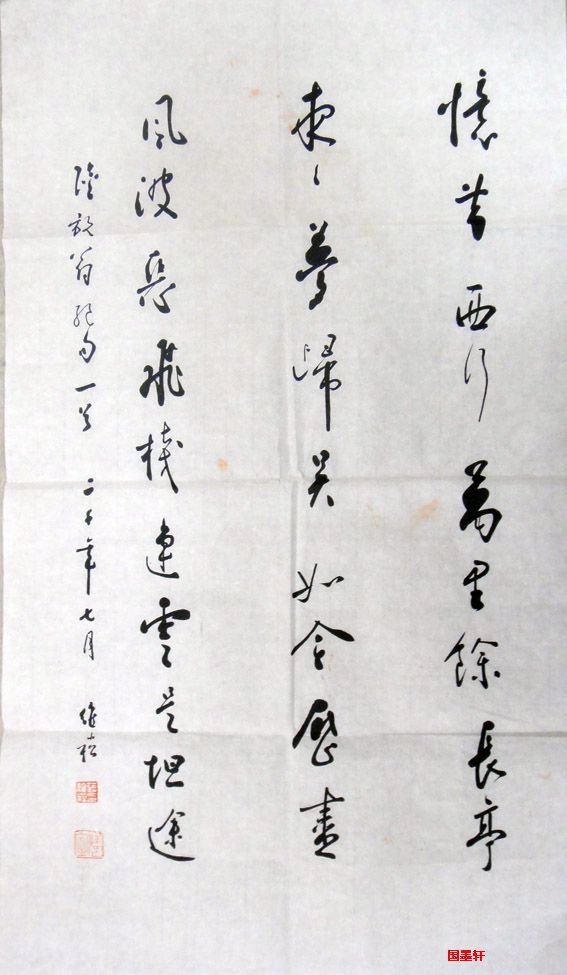 憶昔西行萬里餘長亭
夜〻夢歸吴如今歷盡
風波惡飛棧連雲是坦途
陸放翁絕句一首 二千年七月 維崧
国墨轩